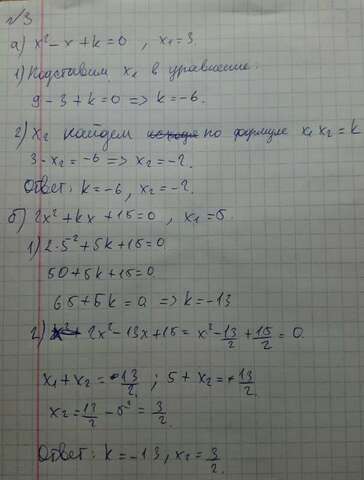 №3
а) x² - x + k = 0 , x₁ = 3.
1) Подставим x₁ в уравнение:
9 - 3 + k = 0 => k = -6.
2) x₂ найдем по формуле x₁ x₂ = k
3 · x₂ = -6 => x₂ = -2.
Ответ: k = -6, x₂ = -2.
б) 2x² + kx + 15 = 0 , x₁ = 5.
1) 2·5² + 5k + 15 = 0
50 + 5k + 15 = 0
65 + 5k = 0 => k = -13
2) 2x² - 13x + 15 = x² - 13/2 + 15/2 = 0
x₁ + x₂ = 13/2 ; 5 + x₂ = 13/2
x₂ = 13/2 - 5 = 3/2
Ответ: k = -13, x₂ = 3/2.